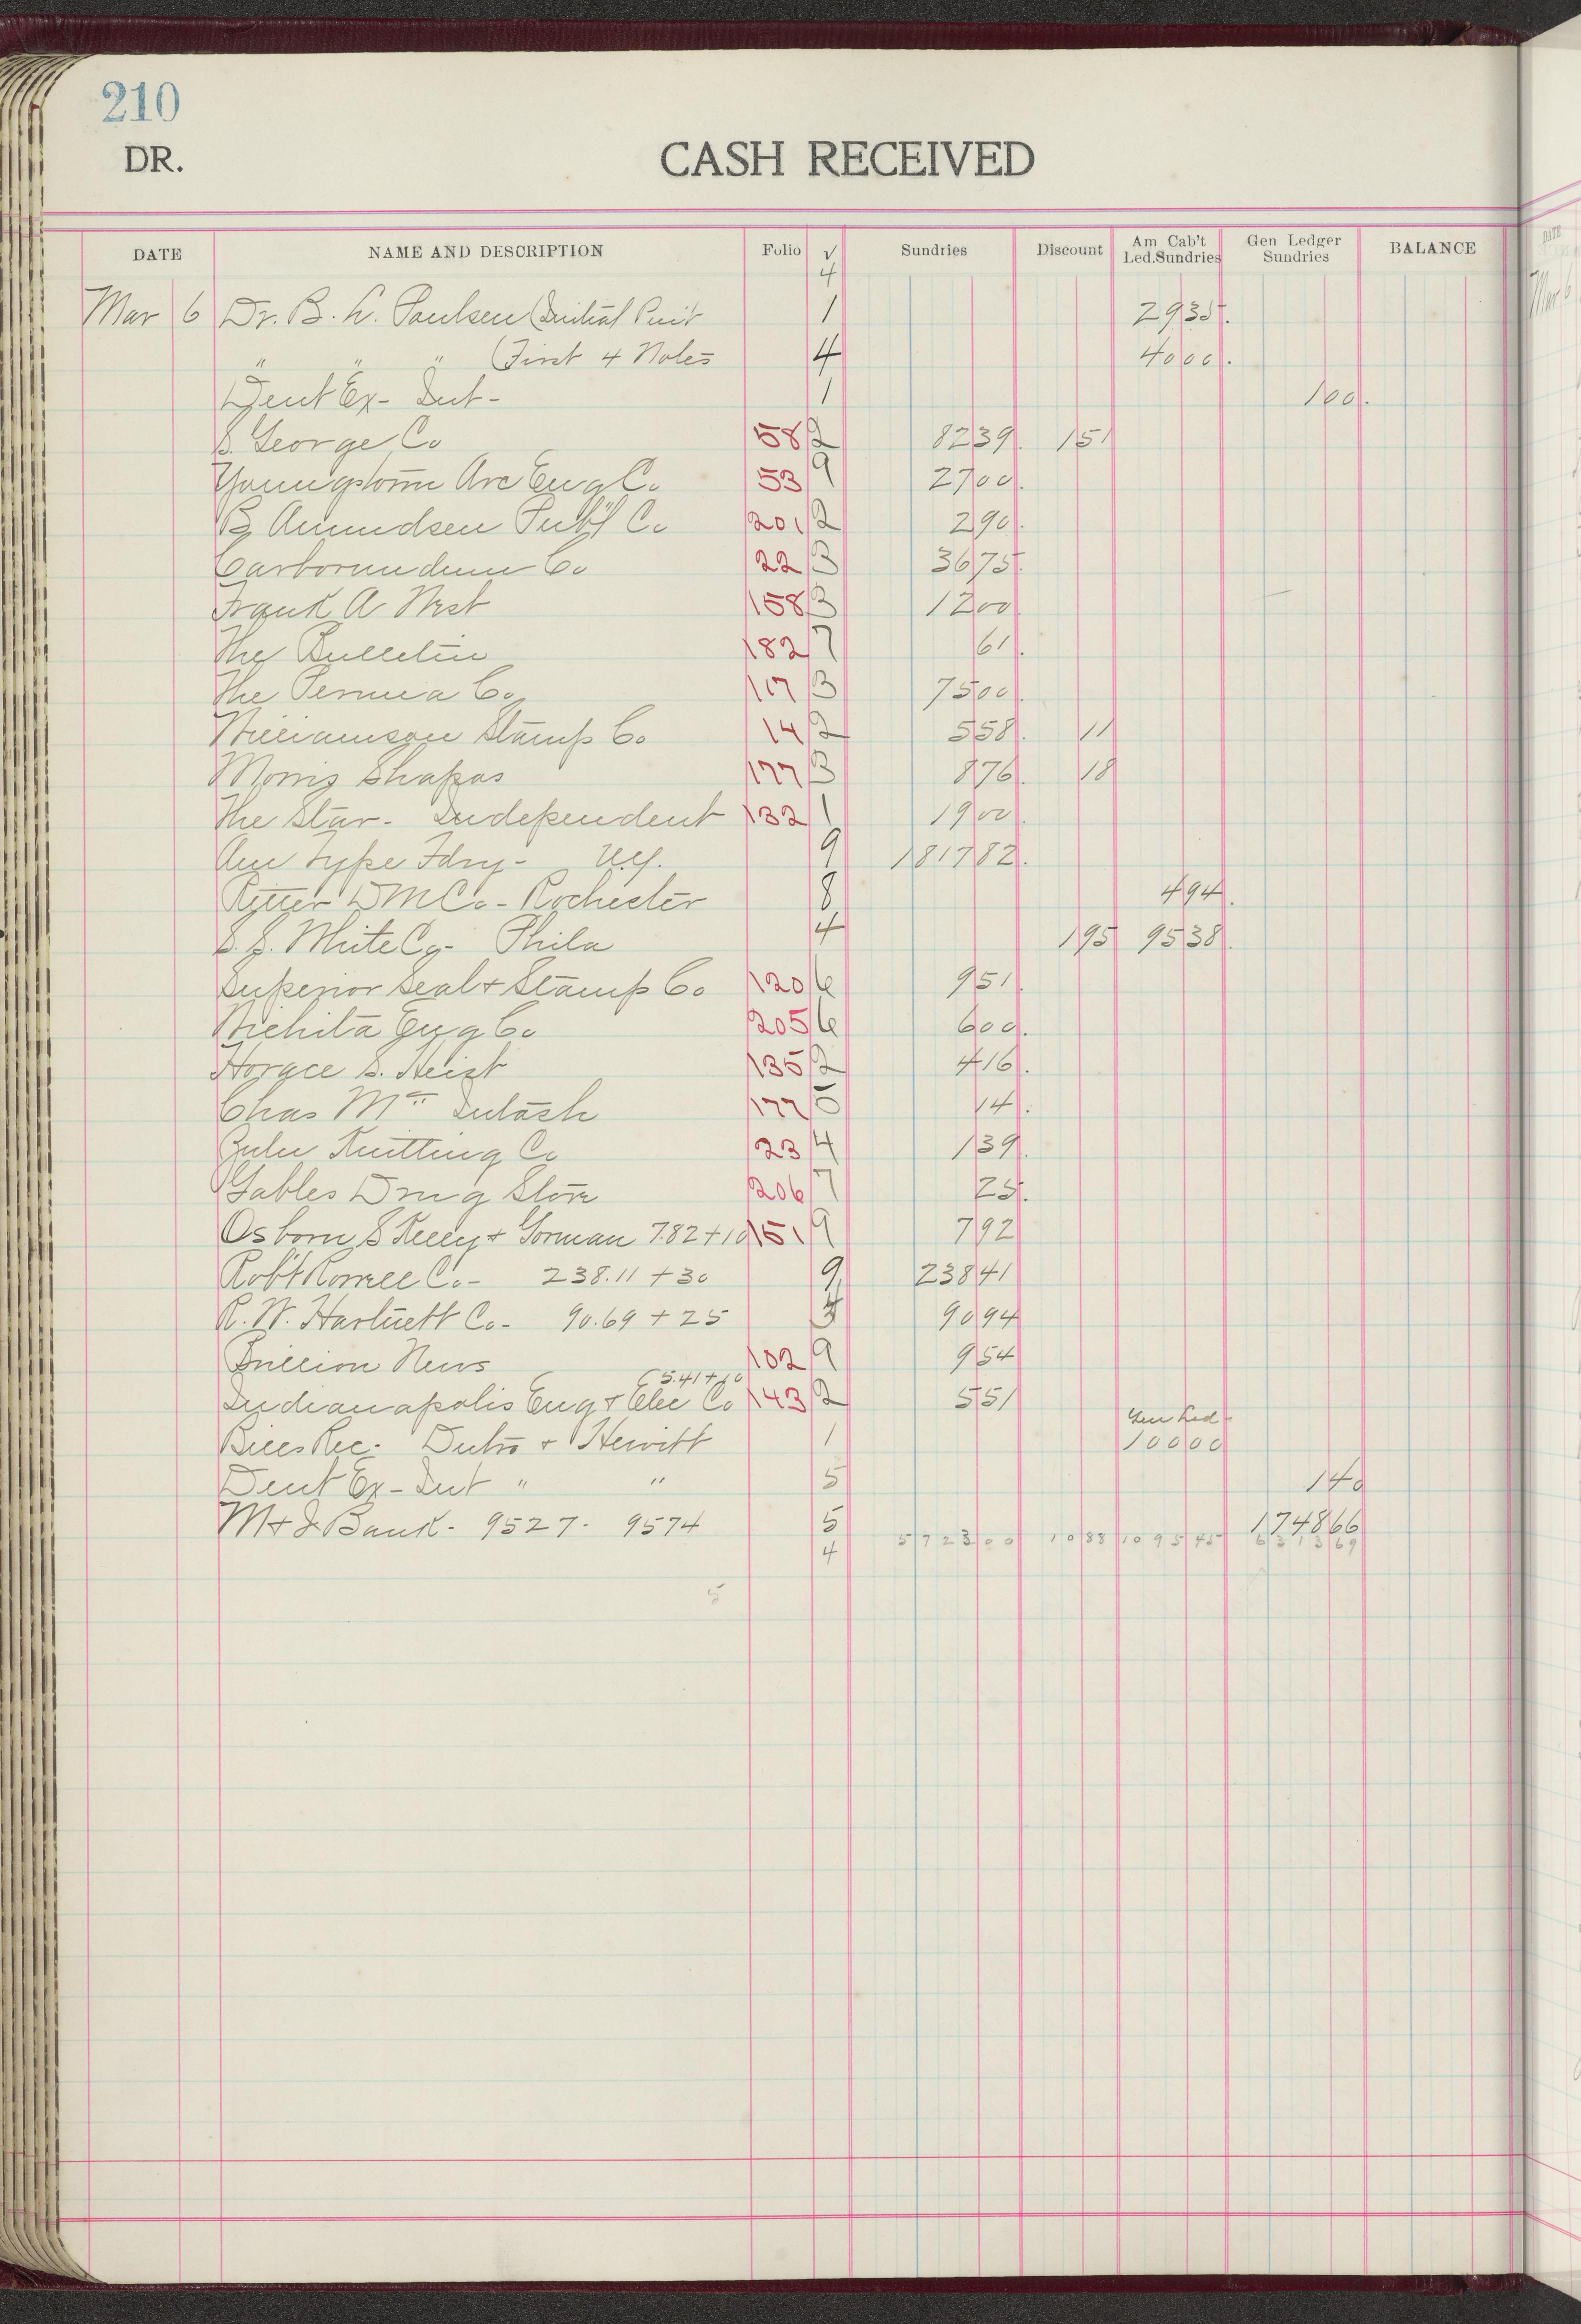 210
DR. CASH RECEIVED
DATE NAME AND DESCRIPTION Folio √ Sundries Discount Am Cab't Led.Sundries Gen Ledger Sundries BALANCE
4
Mar 6 Dr. B. L. Paulsen (Initial Pmt 1 2935.
" " " (First 4 Notes 4 4000.
Dent Ex - Int - 1 100.
S. George Co 58 2 8239. 151
Youngstown Arc Eng Co 53 9 2700.
B Amundsen Pub'l Co 201 2 290.
Carborundum Co 22 3 3675.
Frank A West 158 3 1200
The Bulletin 182 7 61.
The Pennia Co 117 3 7500.
Williamson Stamp Co 14 2 558. 11
Morris Shapas 177 3 876. 18
The Star - Independent 132 1 1900.
Am Type Fdry - N.Y. 9 181782.
Ritter D M Co - Rochester 8 494.
S. S. White Co - Phila 4 195 9538.
Superior Seal + Stamp Co 120 6 951.
Wichita Eng Co 205 6 600.
Horace S. Heist 135 2 416.
Chas Mc Intash 177 5 14.
Zulu Knitting Co 23 4 139.
Gables Drug Store 206 7 25.
Osborn S Kelly + Gorman 7.82 + 10 151 9 792
Rob't Rowell Co - 238.11 + 30 9 23841
R. W. Hartnett Co - 90.69 + 25 4 9094
Brillion News 102 9 954
(5.41 + 10
Indianapolis Eng + Elec Co 143 2 551
Gen Led -
Bills Rec - Dutro + Hewitt 1 10000
Dent Ex - Int " " 5 140
M + I Bank - 9527 - 9574 5 174866
4 572300 1088 109545 631369
5